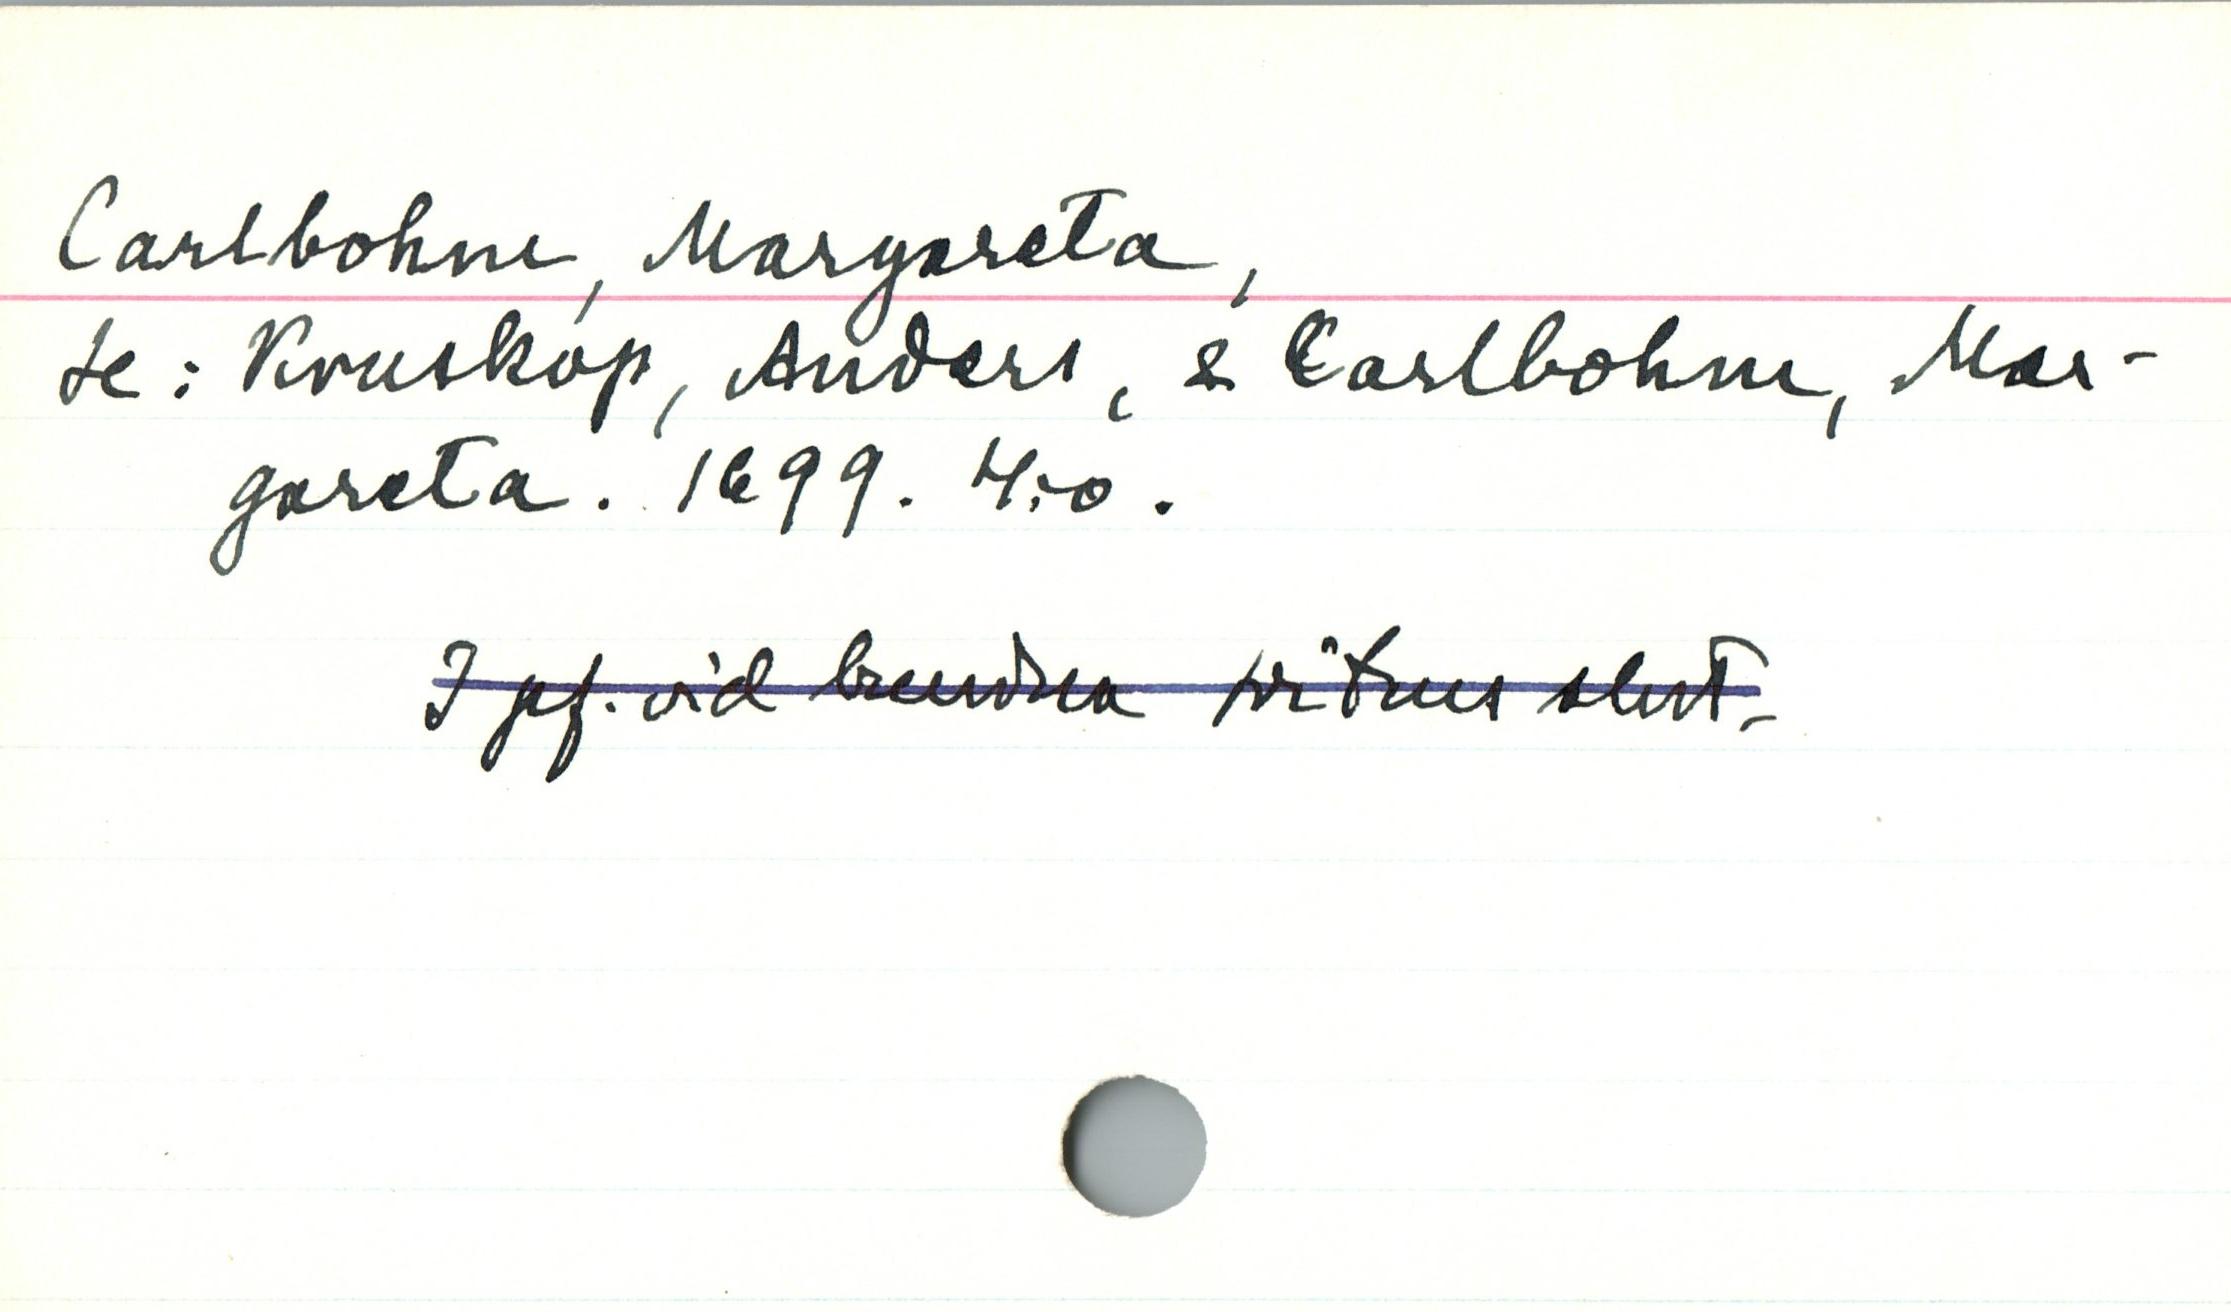 Carlbohm, Margareta,
se: Kruskop, Anders, & Carlbohm, Mar-
gareta. 1699. 4:o.
I pf. vid slut.